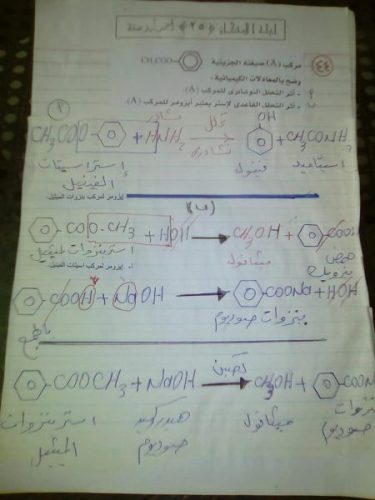 ليلة الامتحان (٢٥) أحمد رمضان
٤٤ مركب (A) صيغته الجزيئية CH₃COO
وضح بالمعادلات الكيميائية :
١ - أثر التحلل النوشادري للمركب (A).
٢ - أثر التحلل القاعدي لإستر يعتبر أيزومر للمركب (A).
CH₃COO + HNH₂ → OH + CH₃CONH
نشادر تحلل نشادري
إستر أسيتات الفينيل فينول أستاميد
إيزومر لمركب بنزوات الميثيل
(ب)
COO-CH₃ + HOH → CH₃OH + COOH
إستر بنزوات الميثيل ميثانول حمض بنزويك
أيزومر لمركب أسيتات الفينيل
COOH + NaOH → COONa + HOH
بنزوات صوديوم
بالجمع
COOCH₃ + NaOH → CH₃OH + COON
تسخين
إستر بنزوات الميثيل هيدروكسيد صوديوم ميثانول